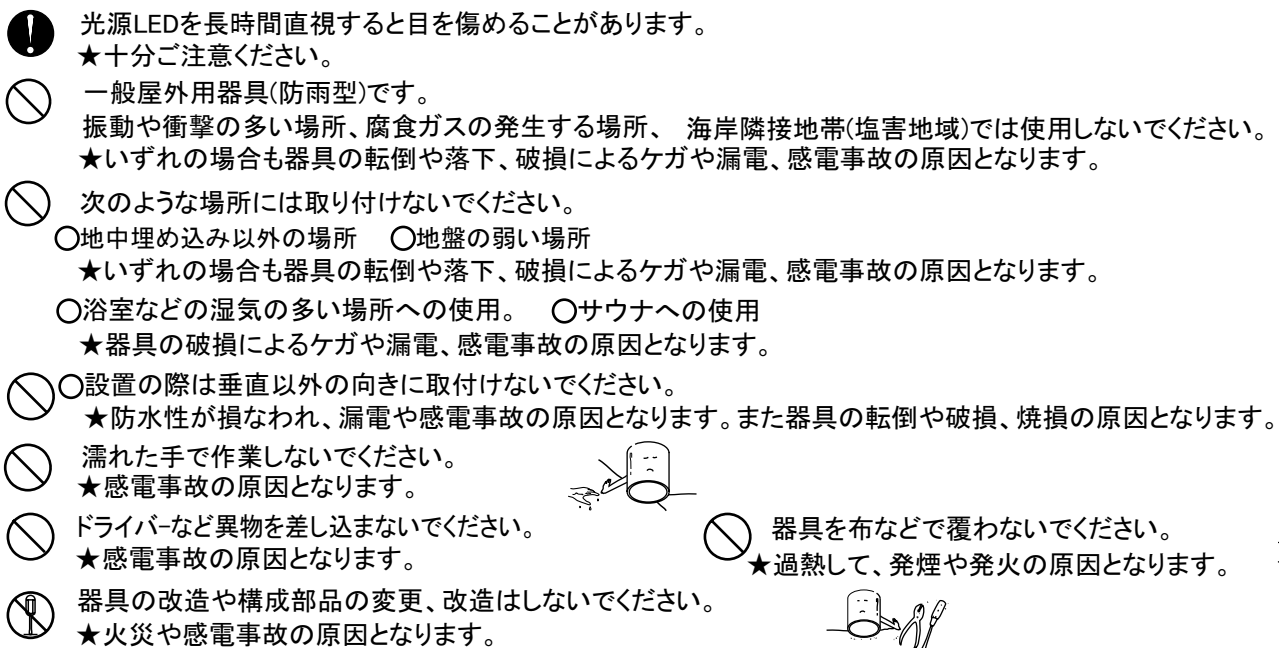 光源LEDを長時間直視すると目を傷めることがあります。
★十分ご注意ください。
一般屋外用器具(防雨型)です。
振動や衝撃の多い場所、腐食ガスの発生する場所、 海岸隣接地帯(塩害地域)では使用しないでください。
★いずれの場合も器具の転倒や落下、破損によるケガや漏電、感電事故の原因となります。
次のような場所には取り付けないでください。
○地中埋め込み以外の場所 ○地盤の弱い場所
★いずれの場合も器具の転倒や落下、破損によるケガや漏電、感電事故の原因となります。
○浴室などの湿気の多い場所への使用。 ○サウナへの使用
★器具の破損によるケガや漏電、感電事故の原因となります。
○設置の際は垂直以外の向きに取付けないでください。
★防水性が損なわれ、漏電や感電事故の原因となります。また器具の転倒や破損、焼損の原因となります。
濡れた手で作業しないでください。
★感電事故の原因となります。
ドライバーなど異物を差し込まないでください。
★感電事故の原因となります。
器具を布などで覆わないでください。
★過熱して、発煙や発火の原因となります。
器具の改造や構成部品の変更、改造はしないでください。
★火災や感電事故の原因となります。